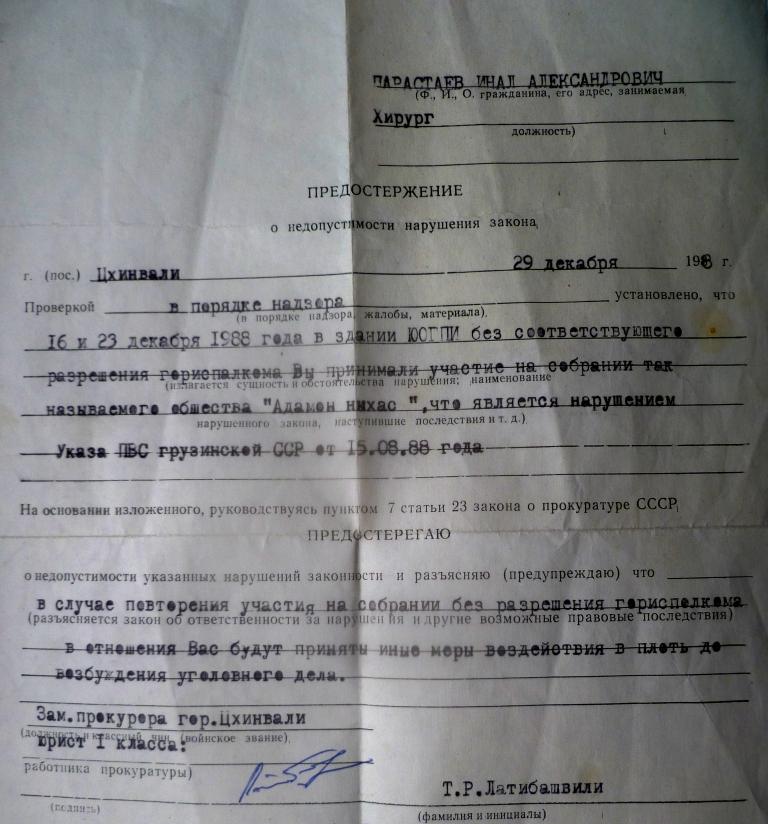 ПАРАСТАЕВ ИНАЛ АЛЕКСАНДРОВИЧ
(Ф., И., О. гражданина, его адрес, занимаемая
Хирург
должность)
ПРЕДОСТЕРЖЕНИЕ
о недопустимости нарушения закона,
г. (пос.) Цхинвали 29 декабря 1988 г.
Проверкой в порядке надзора установлено, что
(в порядке надзора, жалобы, материала),
16 и 23 декабря 1988 года в здании ЮОГПИ без соответствующего
разрешения горисполкома Вы принимали участие на собрании так
(излагается сущность и обстоятельства нарушения; наименование
называемого общества "Адамон нихас ",что является нарушением
нарушенного закона, наступившие последствия и т. д.)
Указа ПВС грузинской ССР от 15.08.88 года
На основании изложенного, руководствуясь пунктом 7 статьи 23 закона о прокуратуре СССР,
ПРЕДОСТЕРЕГАЮ
о недопустимости указанных нарушений законности и разъясняю (предупреждаю) что
в случае повторения участия на собрании без разрешения горисполкома
(разъясняется закон об ответственности за нарушения и другие возможные правовые последствия)
в отношения Вас будут приняты иные меры воздействия в плоть до
возбуждения уголовного дела.
Зам.прокурора гор.Цхинвали
(должность и классный чин (воинское звание),
юрист I класса:
работника прокуратуры)
Т.Р.Латибашвили
(подпись) (фамилия и инициалы)